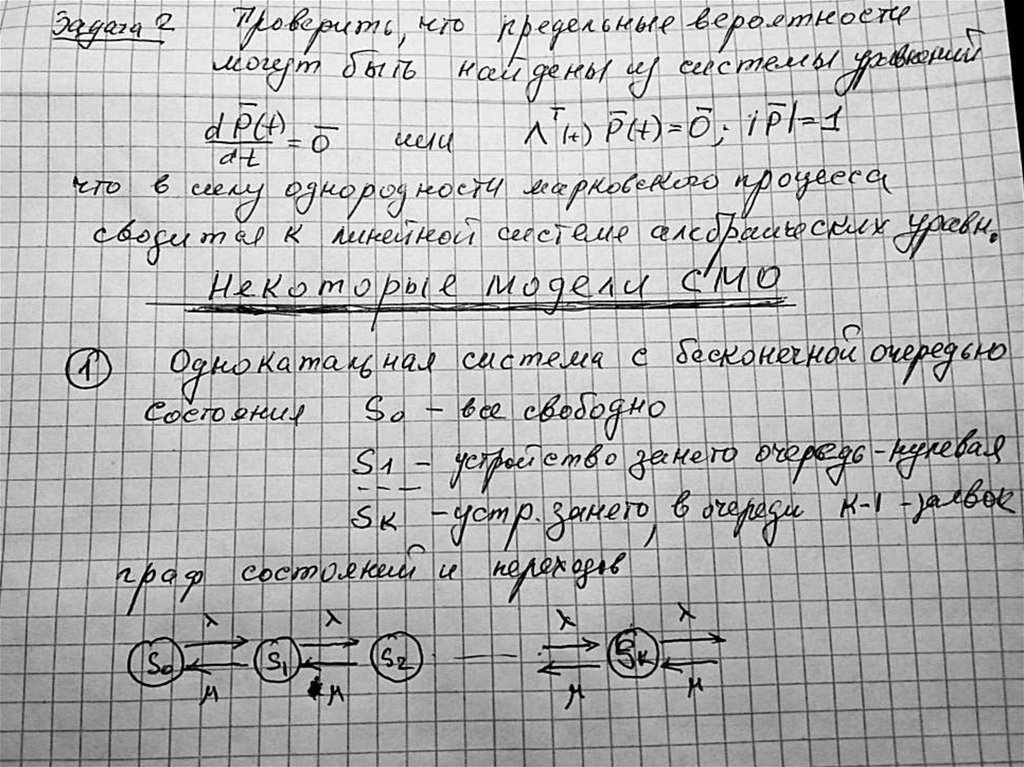 Задача 2 Проверить, что предельные вероятности
могут быть найдены из системы уравнений
dP̄(t)/dt = 0̄ или Λᵀ(t) P̄(t) = 0̄; |P̄| = 1
что в силу однородности марковского процесса
сводится к линейной системе алгебраических уравн.
Некоторые модели СМО
① Одноканальная система с бесконечной очередью
Состояния S₀ – все свободно
S₁ – устройство занято очередь - нулевая
- - -
Sк – устр. занято, в очереди к-1 - заявок
граф состояний и переходов
λ λ λ λ
S₀ S₁ S₂ Sк
μ μ μ μ